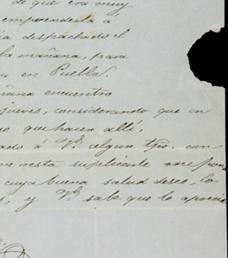 de que era muy
emprenderla á
ia despachado el
la mañana, para
en Puebla.
ñana encuentro
jueves, considerando que en
go que hacer allí,
ado á V. algun tpo. con
me resta suplicarle
cuya buena salud deseo, la
s, y V. sabe que lo aprecia